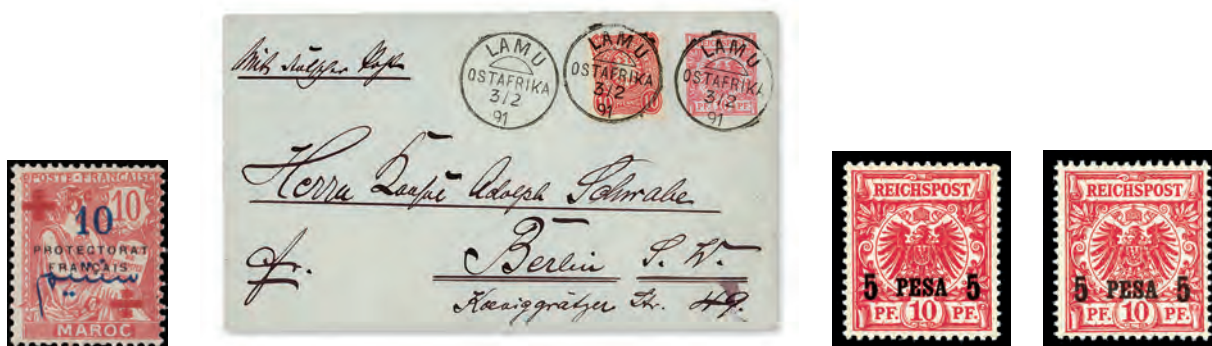 POSTE FRANÇAISE
10
10
PROTECTORAT
FRANÇAIS
MAROC
LAMU
OSTAFRIKA
3/2
91
LAMU
OSTAFRIKA
3/2
91
LAMU
OSTAFRIKA
3/2
91
PF. PF.
Herrn Adolph Schwabe
Berlin S. W.
Koeniggrätzer Str. 49.
REICHSPOST
5 PESA 5
PF. 10 PF.
REICHSPOST
5 PESA 5
PF. 10 PF.